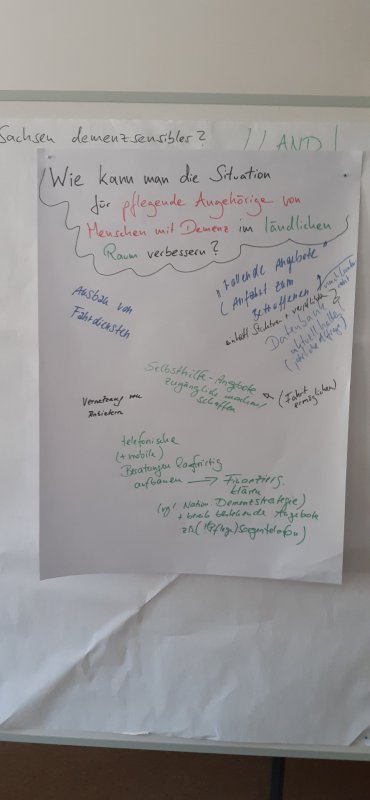 Sachsen demenzsensibler? LAND!
Wie kann man die Situation
für pflegende Angehörige von
Menschen mit Demenz im ländlichen
Raum verbessern?
"rollende Angebote"
(Anfahrt zum
Betroffenen)
Ausbau von
Fahrdiensten
Datenbank
aktuell halten
Selbsthilfe-Angebote
zugänglich machen
schaffen
(Fahrt
ermöglichen)
Vernetzung von
Anbietern
telefonische
(+ mobile)
Beratungen langfristig
aufbauen → Finanzierg.
klären
(vgl. Nation. Demenzstrategie)
+ bereits bestehende Angebote
z.B. (Pflege)sorgentelefon)